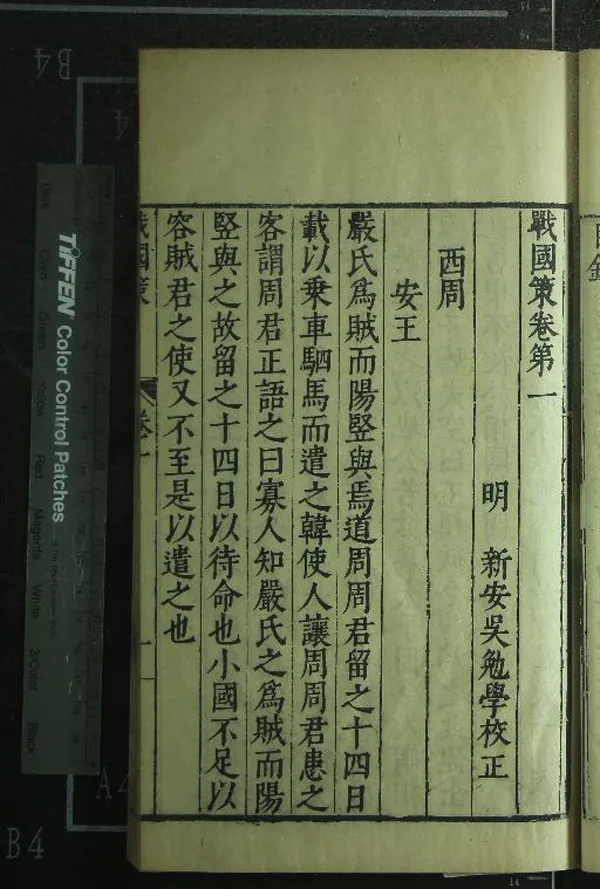 戰國策卷第一
明　新安吳勉學校正
西周
安王
嚴氏爲賊而陽竪與焉道周周君留之十四日
載以乗車駟馬而遣之韓使人讓周周君患之
客謂周君正語之曰寡人知嚴氏之爲賊而陽
竪與之故留之十四日以待命也小國不足以
容賊君之使又不至是以遣之也
戰國策　卷一　一
目錄
TIFFEN Color Control Patches
Blue
Cyan
Green
Yellow
Red
Magenta
White
3/Color
Black
B4
A4
B4